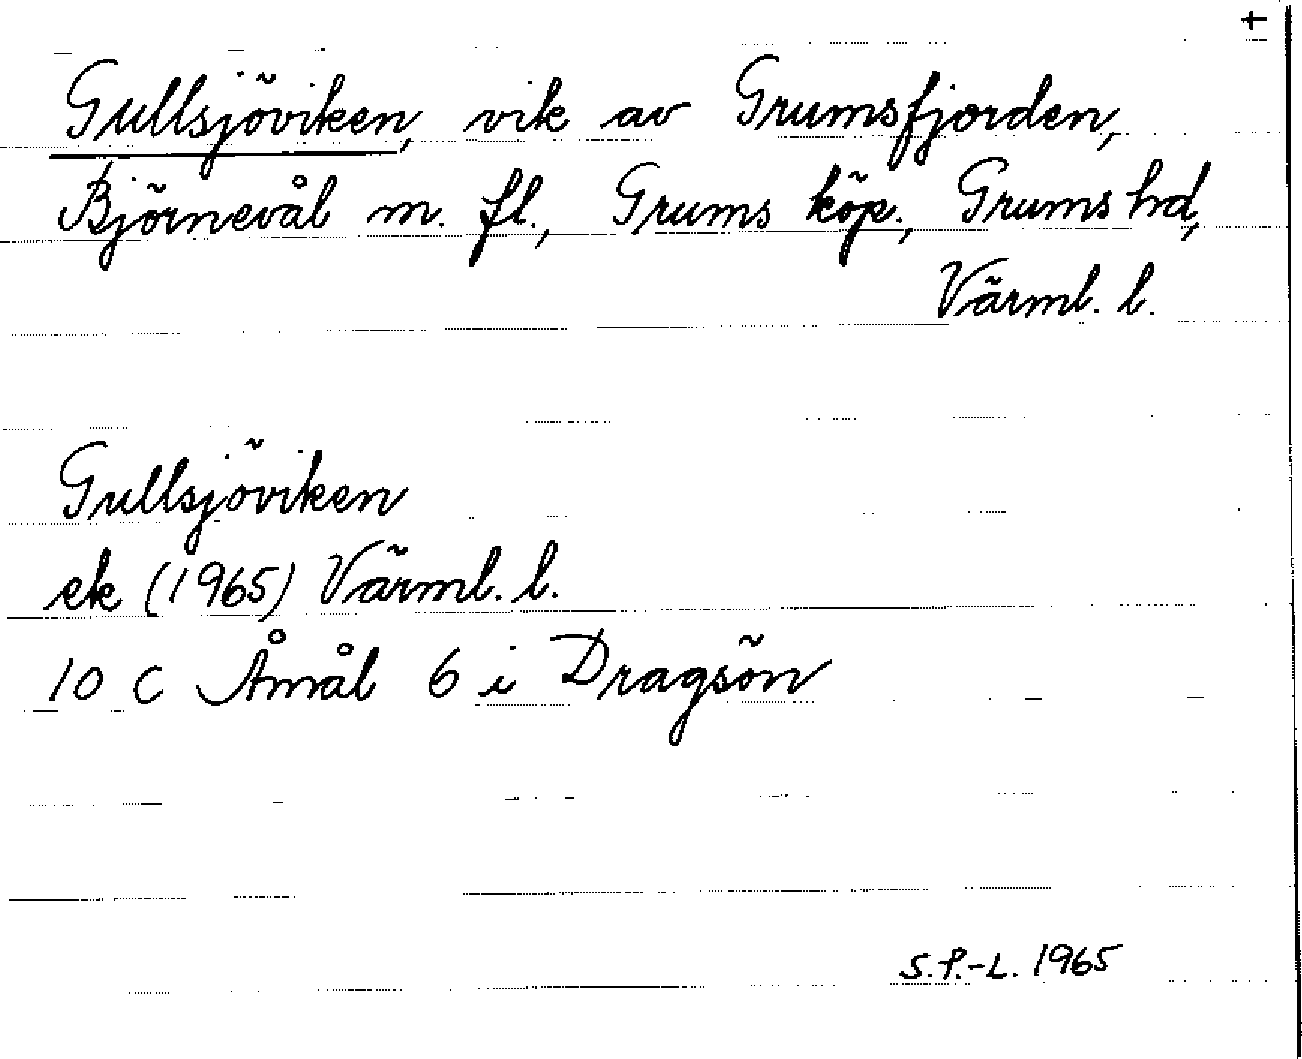 Gullsjöviken, vik av Grumsfjorden,
Björnevål m. fl., Grums köp., Grums hd,
Värml. l.
Gullsjöviken
ek (1965) Värml. l.
10 C Åmål 6 i Dragsön
S.P.-L. 1965